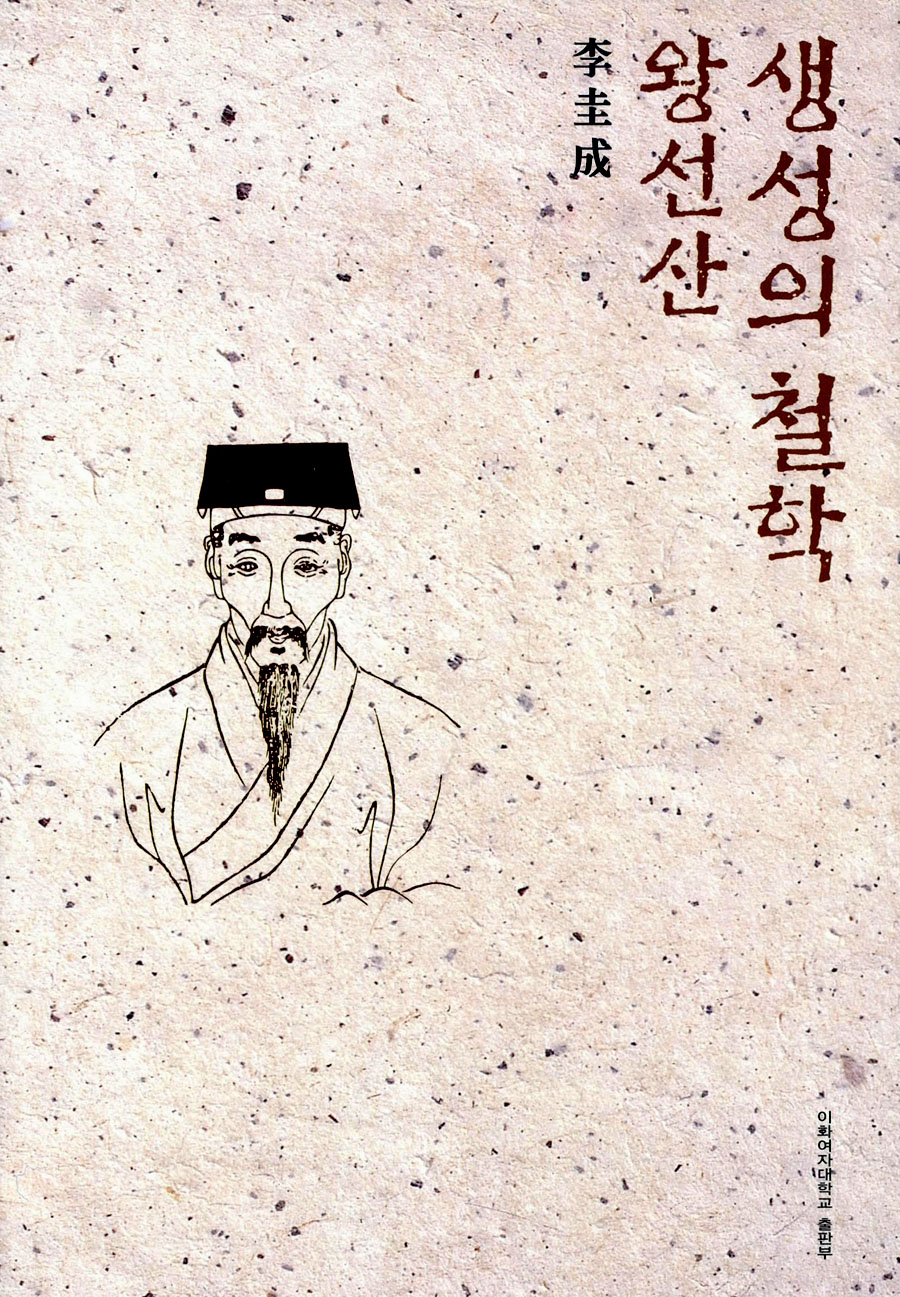 생성의 철학
왕선산
李圭成
이화여자대학교 출판부